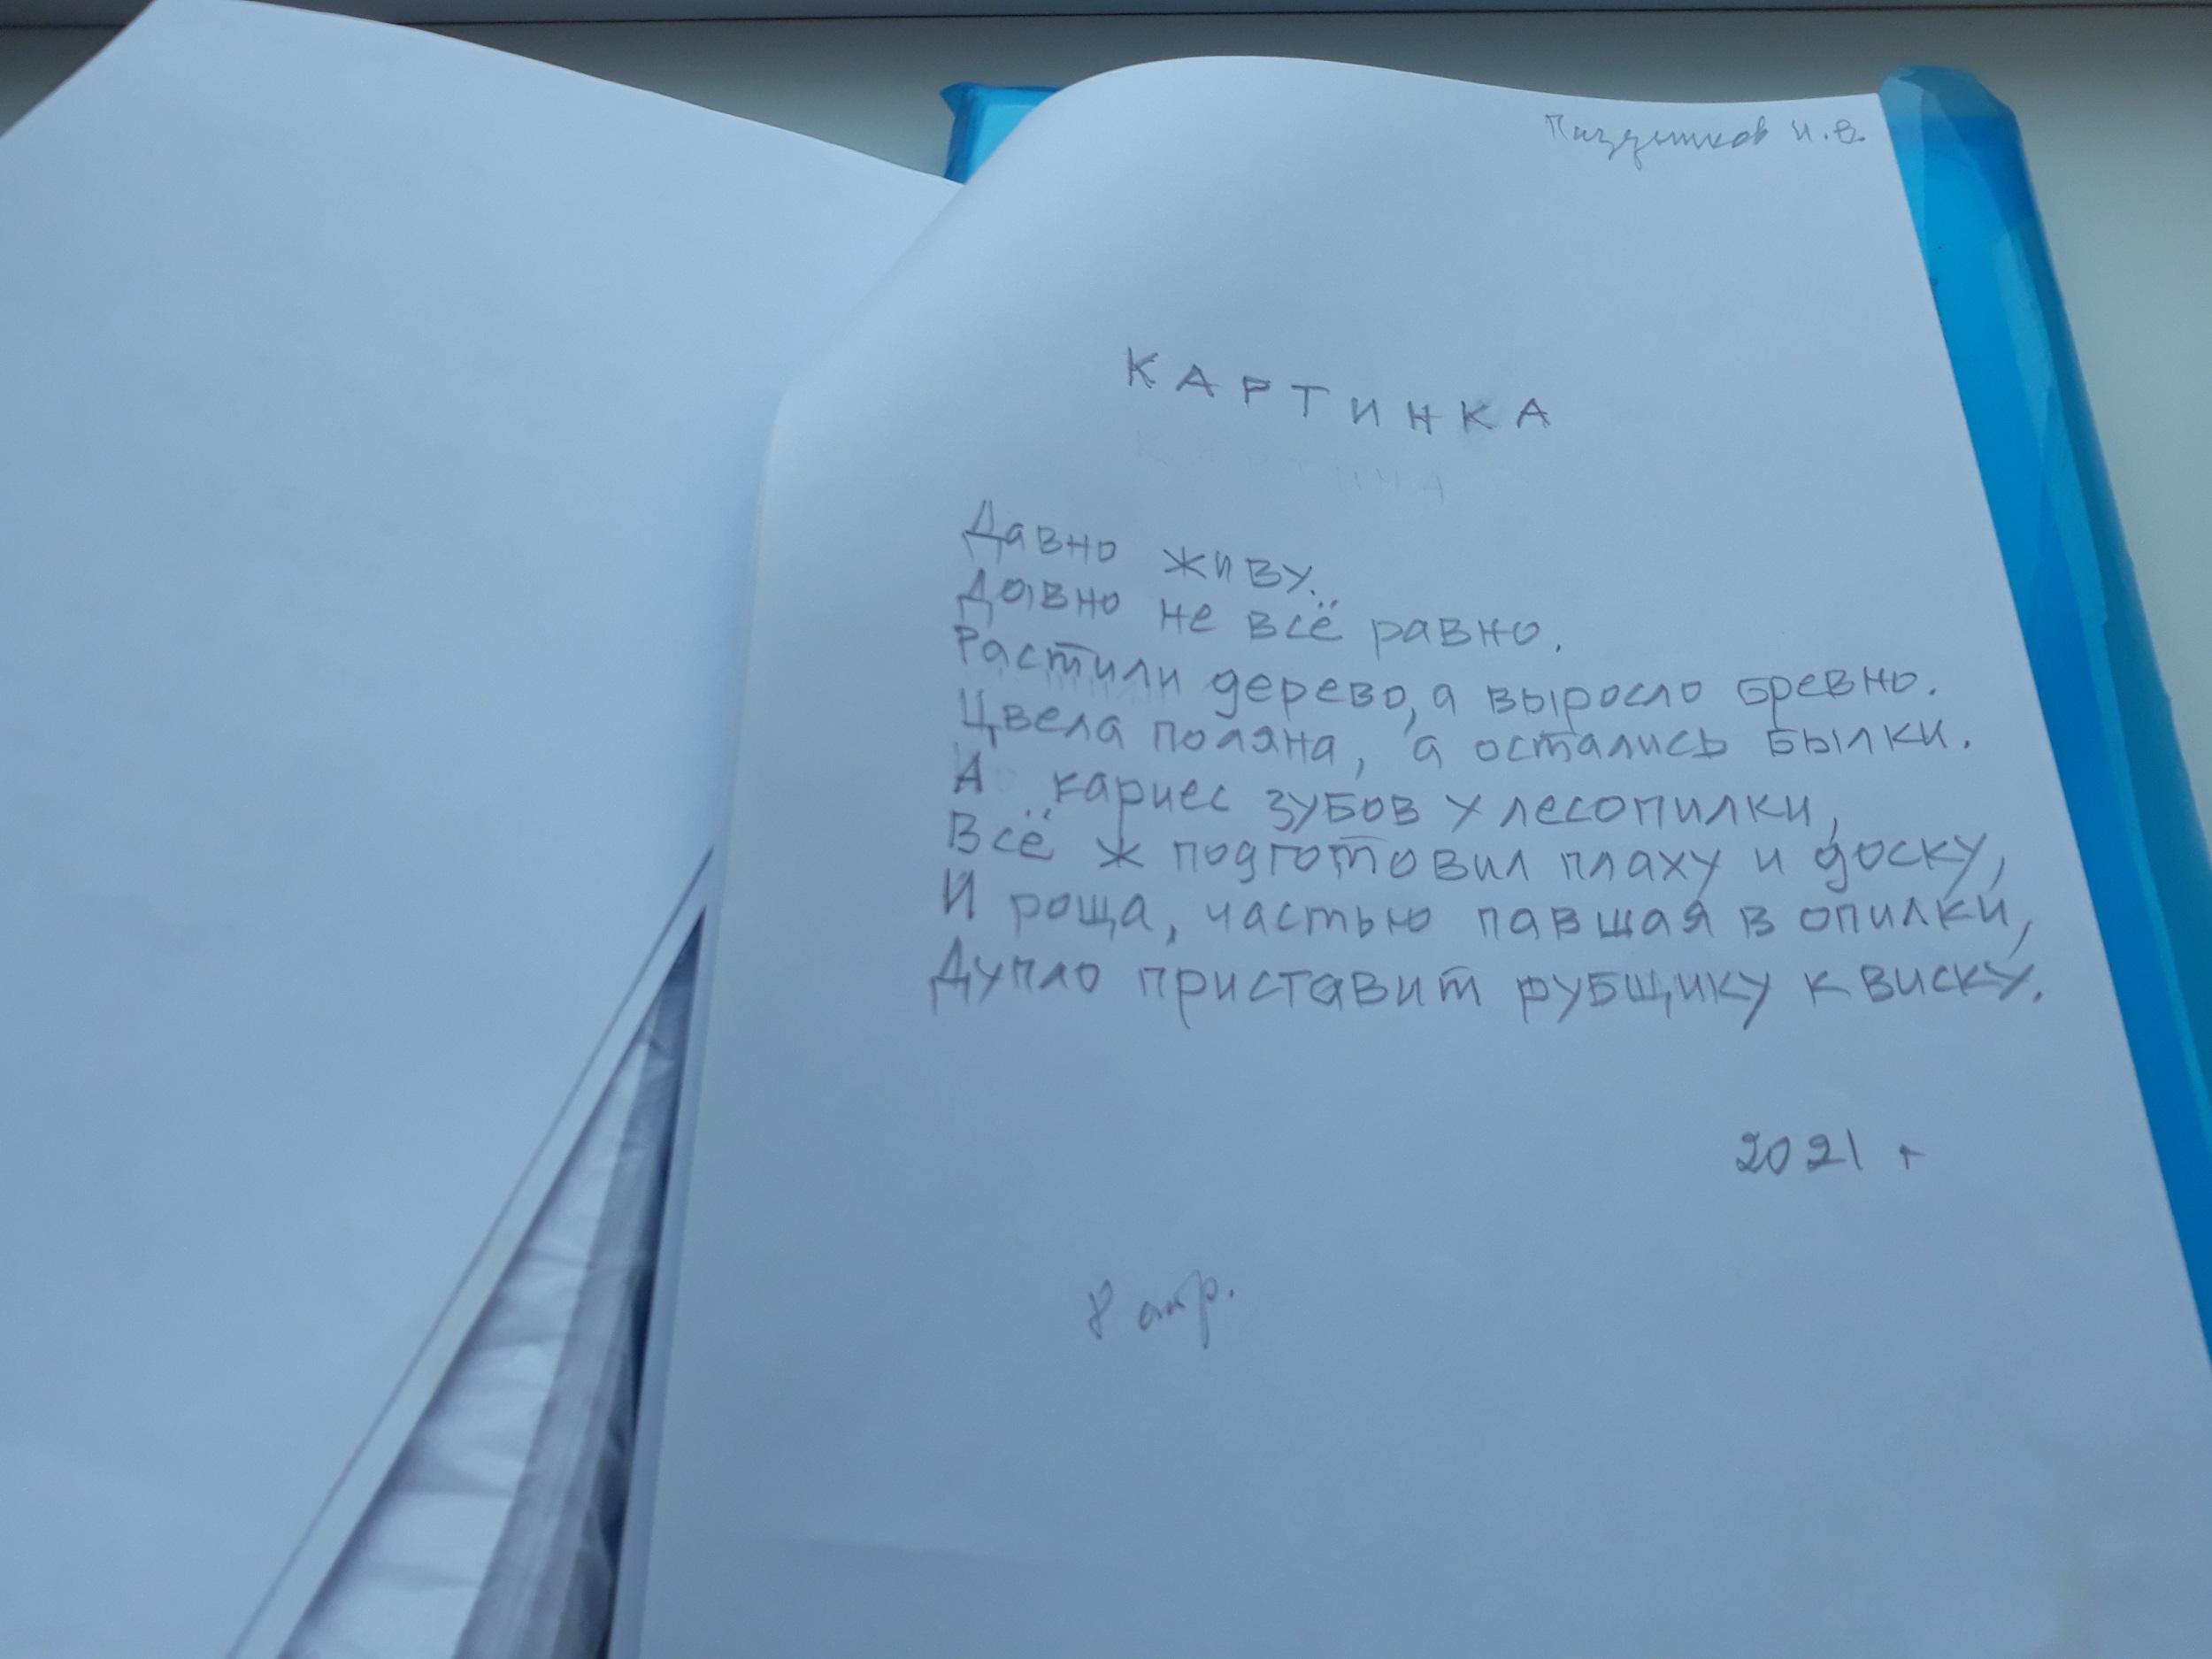 И.В.
КАРТИНКА
Давно живу.
Давно не всё равно.
Растили дерево, а выросло бревно.
Цвела поляна, а остались былки.
А кариес зубов у лесопилки,
Всё ж подготовил плаху и доску,
И роща, частью павшая в опилки,
Дупло приставит рубщику к виску.
2021 г
8 стр.